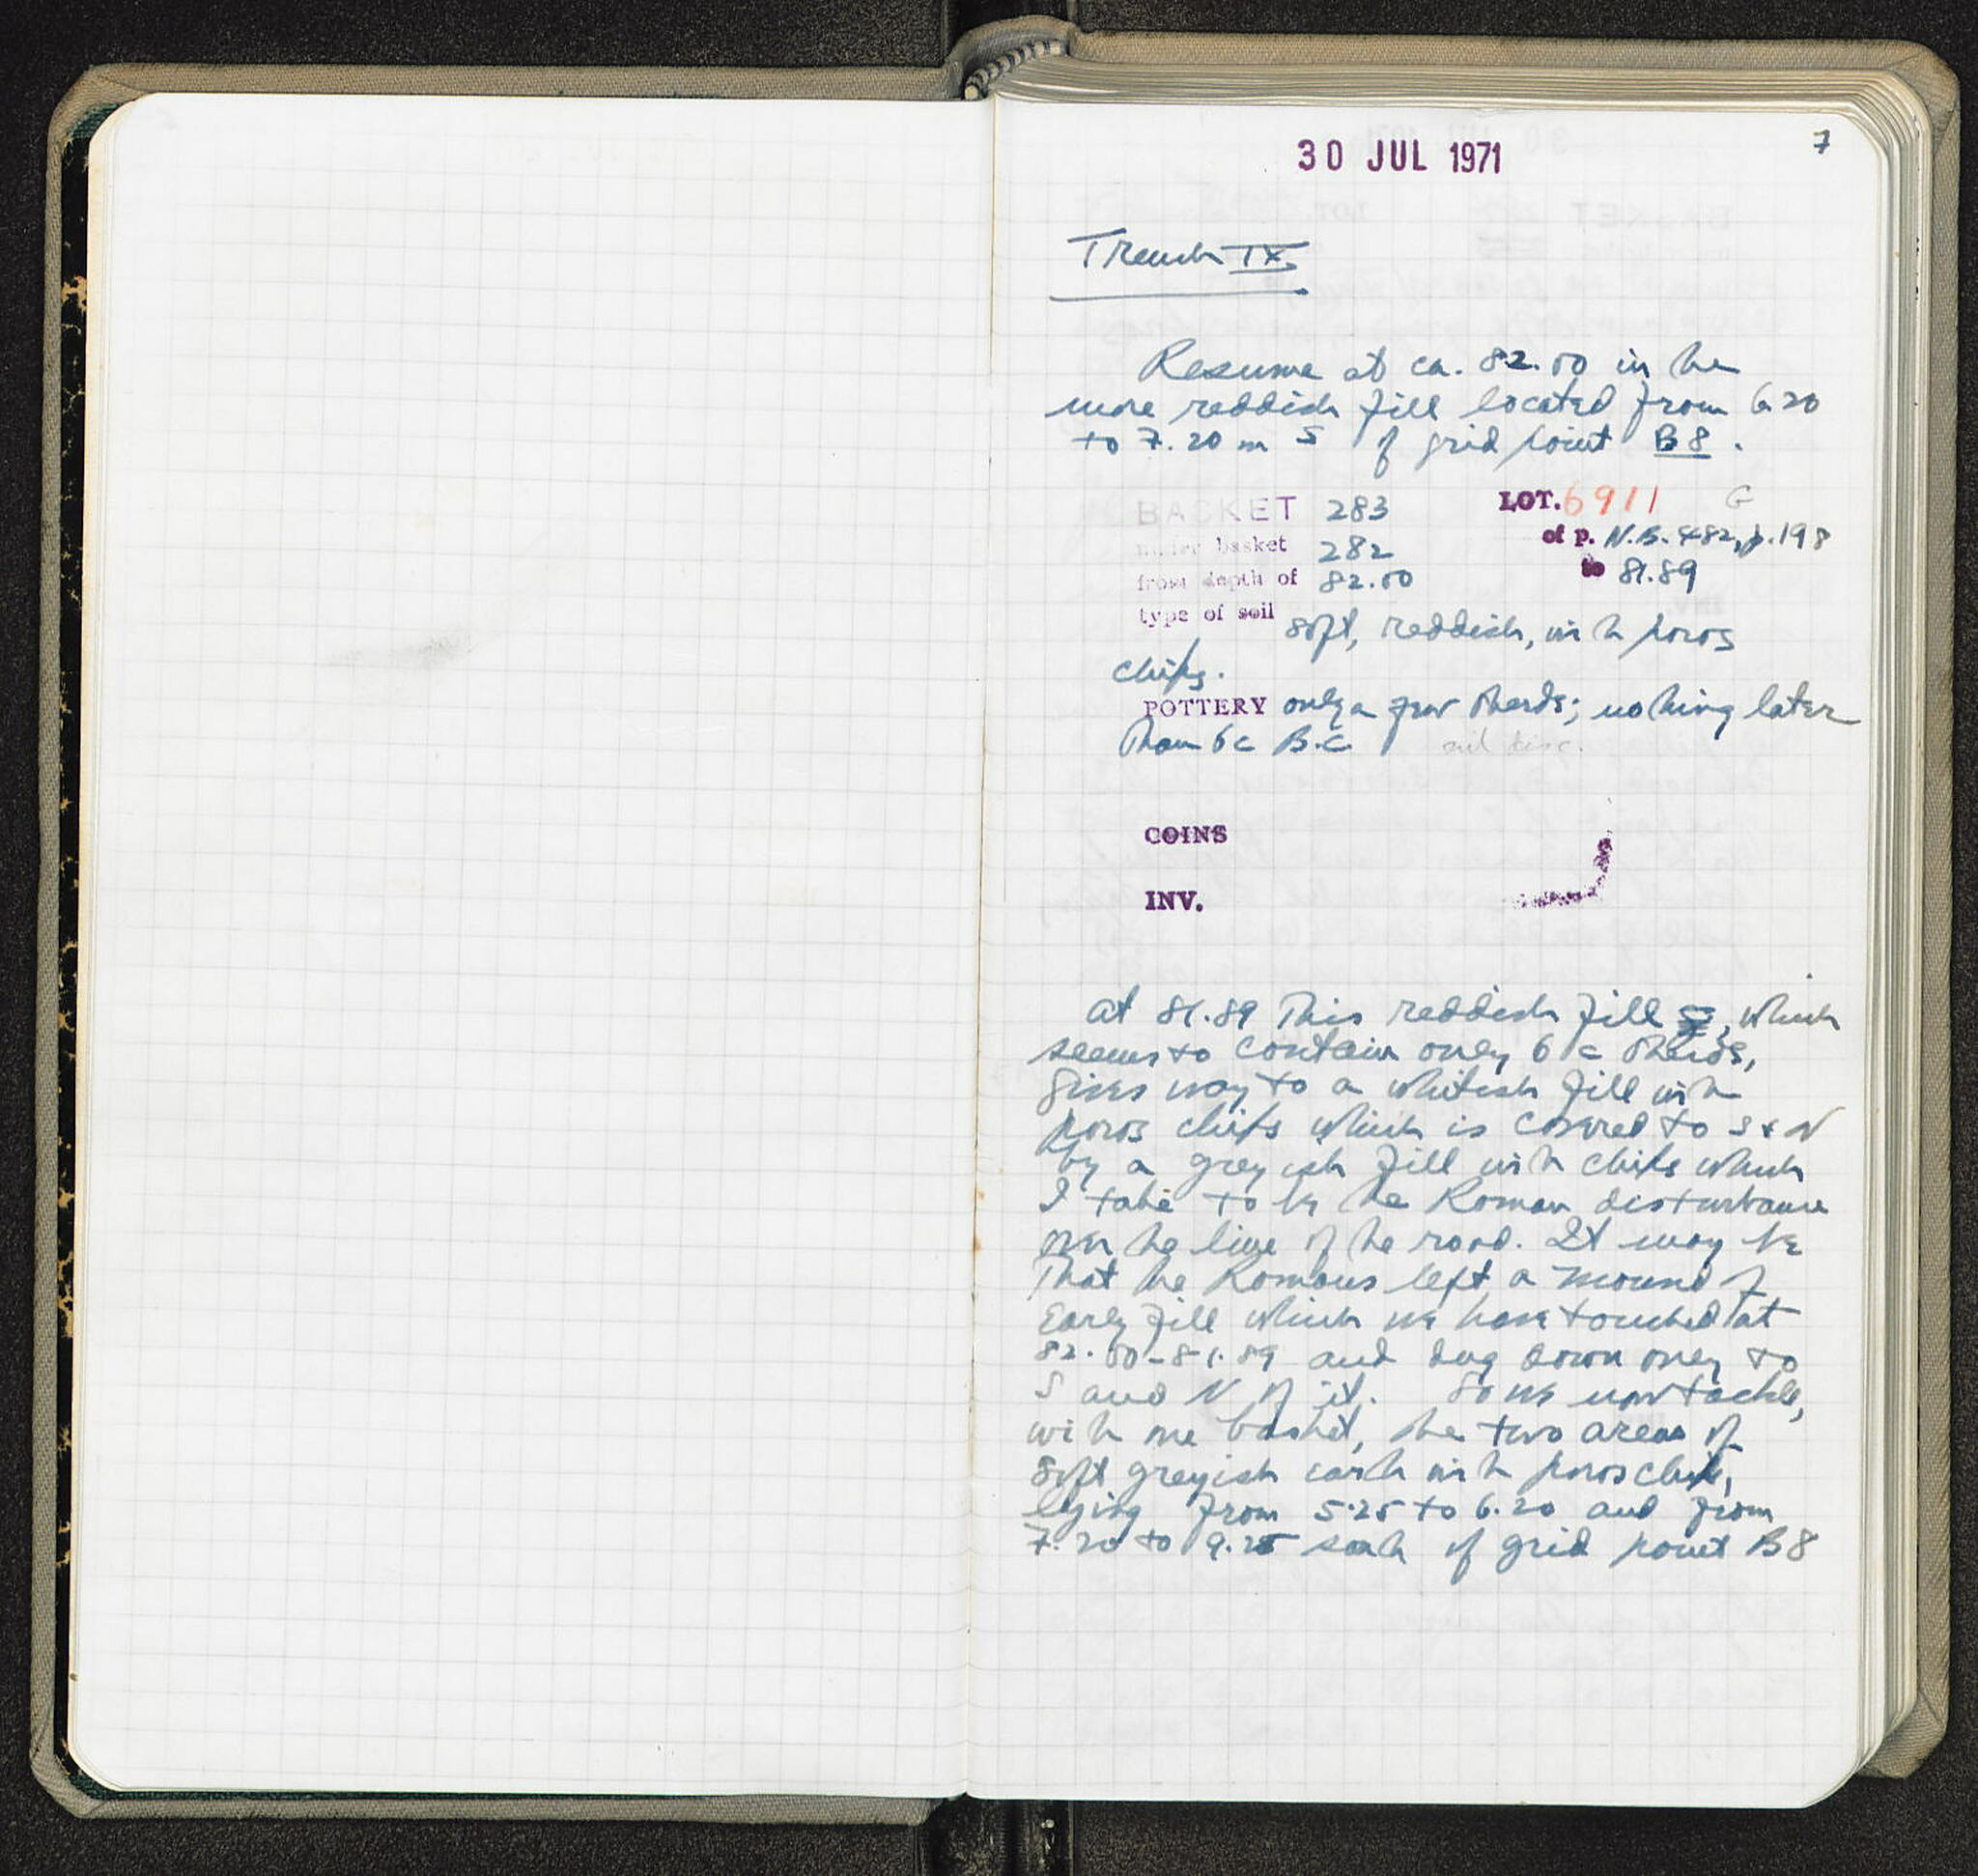 7
30 JUL 1971
Trench IX.
Resume at ca. 82.00 in the
more reddish fill located from 6.20
to 7.20 m S of grid point B8.
BASKET 283 LOT. 6911 G
under basket 282 of p. N.B. 482, p. 198
from depth of 82.00 to 81.89
type of soil soft, reddish, with poros
chips.
POTTERY only a few sherds; nothing later
than 6c B.C.
COINS
INV.
At 81.89 this reddish fill, which
seems to contain only 6 c sherds,
gives way to a whitish fill with
poros chips which is covered to S + N
by a greyish fill with chips which
I take to be the Roman disturbance
over the line of the road. It may be
that the Romans left a mound of
Early fill which we have touched at
82.00-81.89 and dug down only to
S and N of it. So we now tackle,
with one basket, the two areas of
soft greyish earth with poros chips,
lying from 5.25 to 6.20 and from
7.20 to 9.25 south of grid point B8